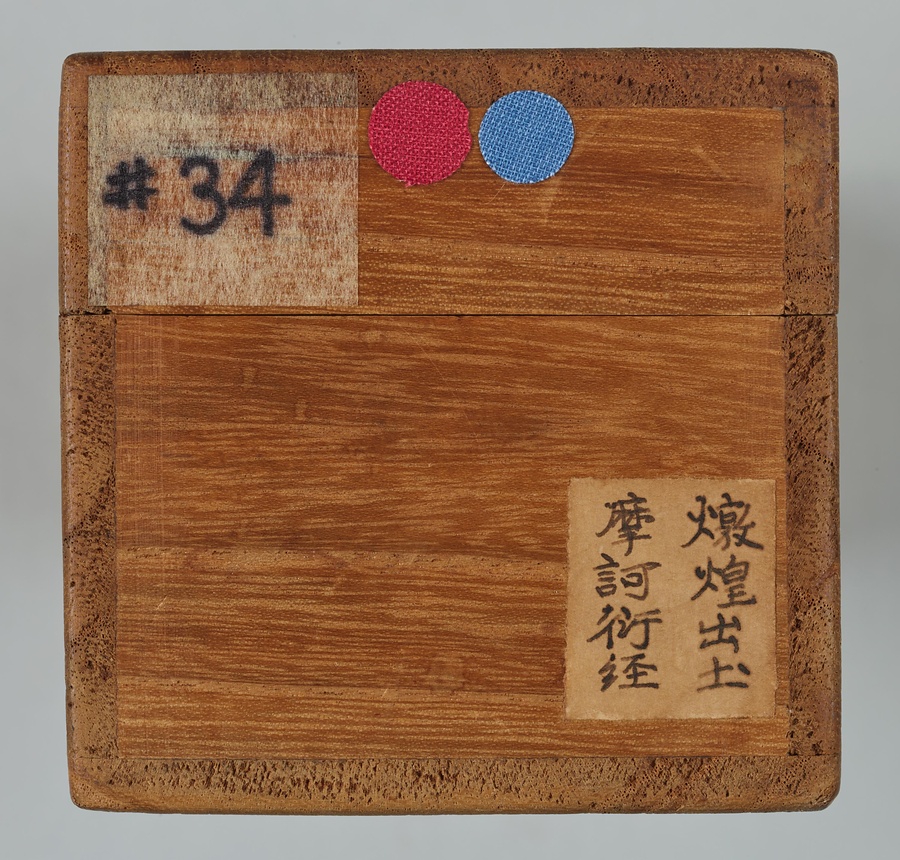 #34
燉煌出土
摩訶衍経